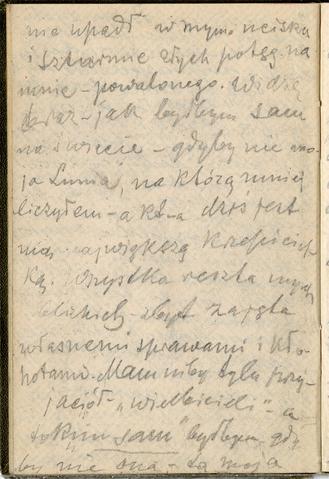 nie upadł w mym ucisku
i szturmie złych potęg na
mnie – powalonego. Widzę
teraz – jak byłbym sam
na świecie – gdyby nie mo-
ja Lunia, na którą mniej
liczyłem – a kt-a dziś jest
największą
ką. Wszystka reszta mych
bliskich – zbyt zajęta
własnemi sprawami i kło-
potami. Mam niby tylu przy-
jaciół – „wielbicieli” – a
sam” byłbym gdy-
by nie ona – ta moja